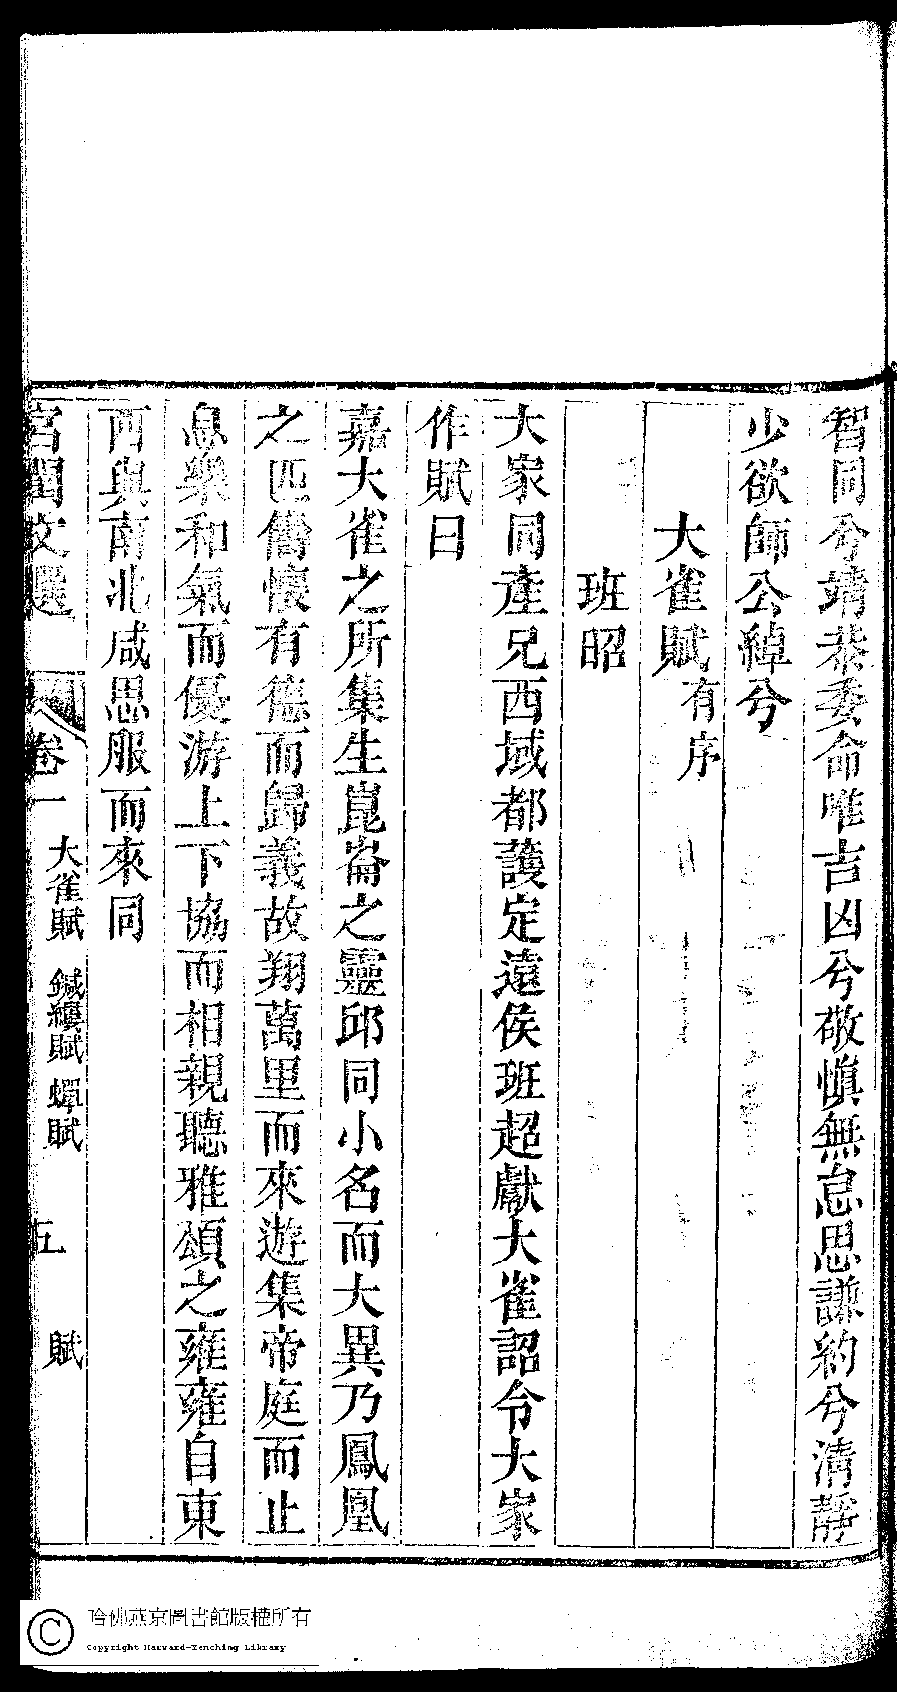 智同兮靖恭委命唯吉凶兮敬慎無怠思謙約兮清靜
少欲師公綽兮
大雀賦有序
班昭
大家同產兄西域都護定遠侯班超獻大雀詔令大家
作賦曰
嘉大雀之所集生崑崙之靈邱同小名而大異乃鳳凰
之匹儔懷有德而歸義故翔萬里而來遊集帝庭而止
息樂和氣而優游上下協而相親聽雅頌之雍雍自東
西與南北咸思服而來同
宮閨文選 卷一 大雀賦 鍼縷賦 蟬賦 五 賦
哈佛燕京圖書館版權所有
Copyright Harvard-Yenching Library